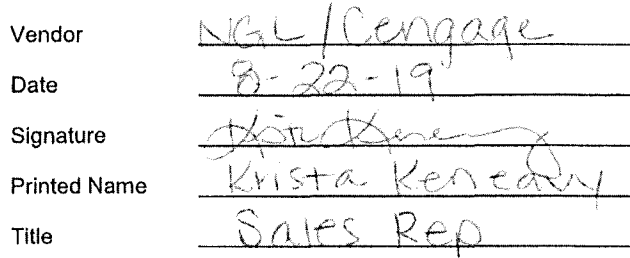 Vendor NGL/Cengage
Date 8-22-19
Signature
Printed Name Krista Keneavy
Title Sales Rep